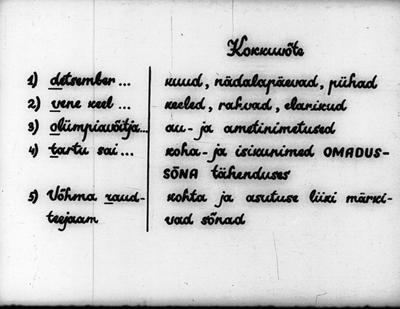 Kokkuvõte
1) detsember ... kuud, nädalapäevad, pühad
2) vene keel ... keeled, rahvad, elanikud
3) olümpiavõitja... au- ja ametinimetused
4) tartu sai ... koha- ja isikunimed OMADUS-
SÕNA tähenduses
5) Võhma raud- kohta ja asutuse liiki märki-
teejaam vad sõnad